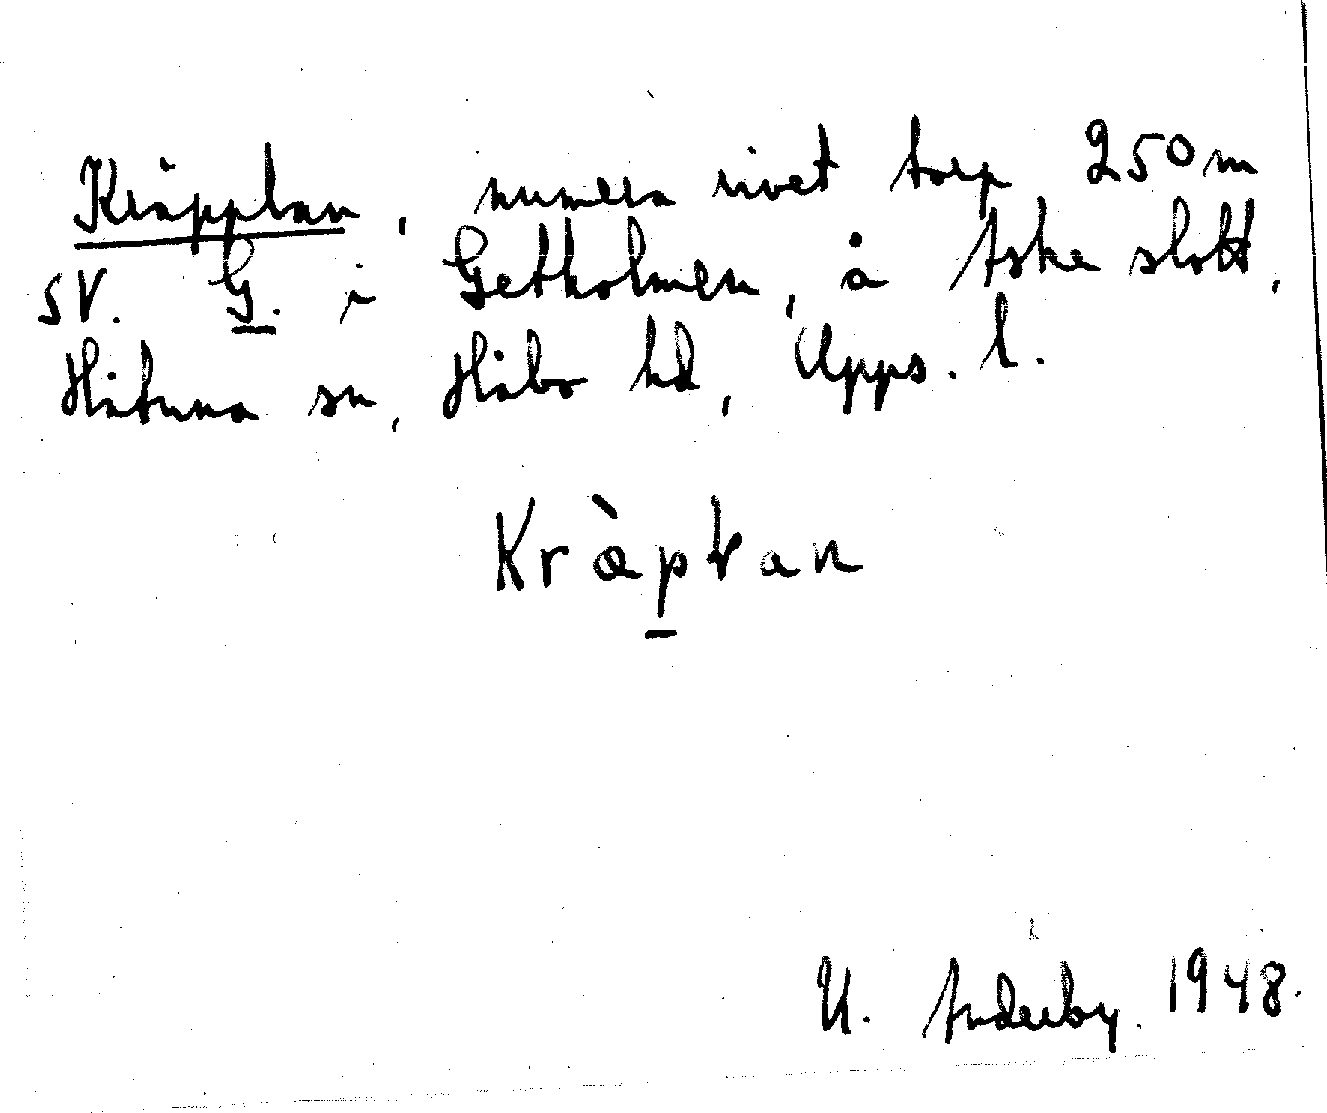 Kråpplan, numera rivet torp 250 m
SV. G. i Getholmen, å Aske slott,
Håtuna sn, Håbo hd, Upps. l.
Kràplan
U. Anderby. 1948.